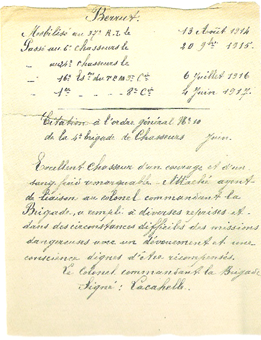 Berruet.
Mobilisé au 37e R.I. le 13 Août 1914
Passé au 6e chasseurs le 20 9bre 1915.
" au 24e chasseurs le
" 16e du 8e Cie 6 Juillet 1916
" 1er 8e Cie 4 Juin 1917.
Citation à l'ordre général No 10
de la 4e brigade de Chasseurs Juin.
Excellent Chasseur d'un courage et d'un
sang froid remarquable. Attaché agent
de liaison au colonel commandant la
Brigade, a rempli à diverses reprises et
dans des circonstances difficiles des missions
dangereuses avec un dévouement et une
conscience dignes d'être récompensés.
Le Colonel commandant la Brigade
Signé: Lacahelle.